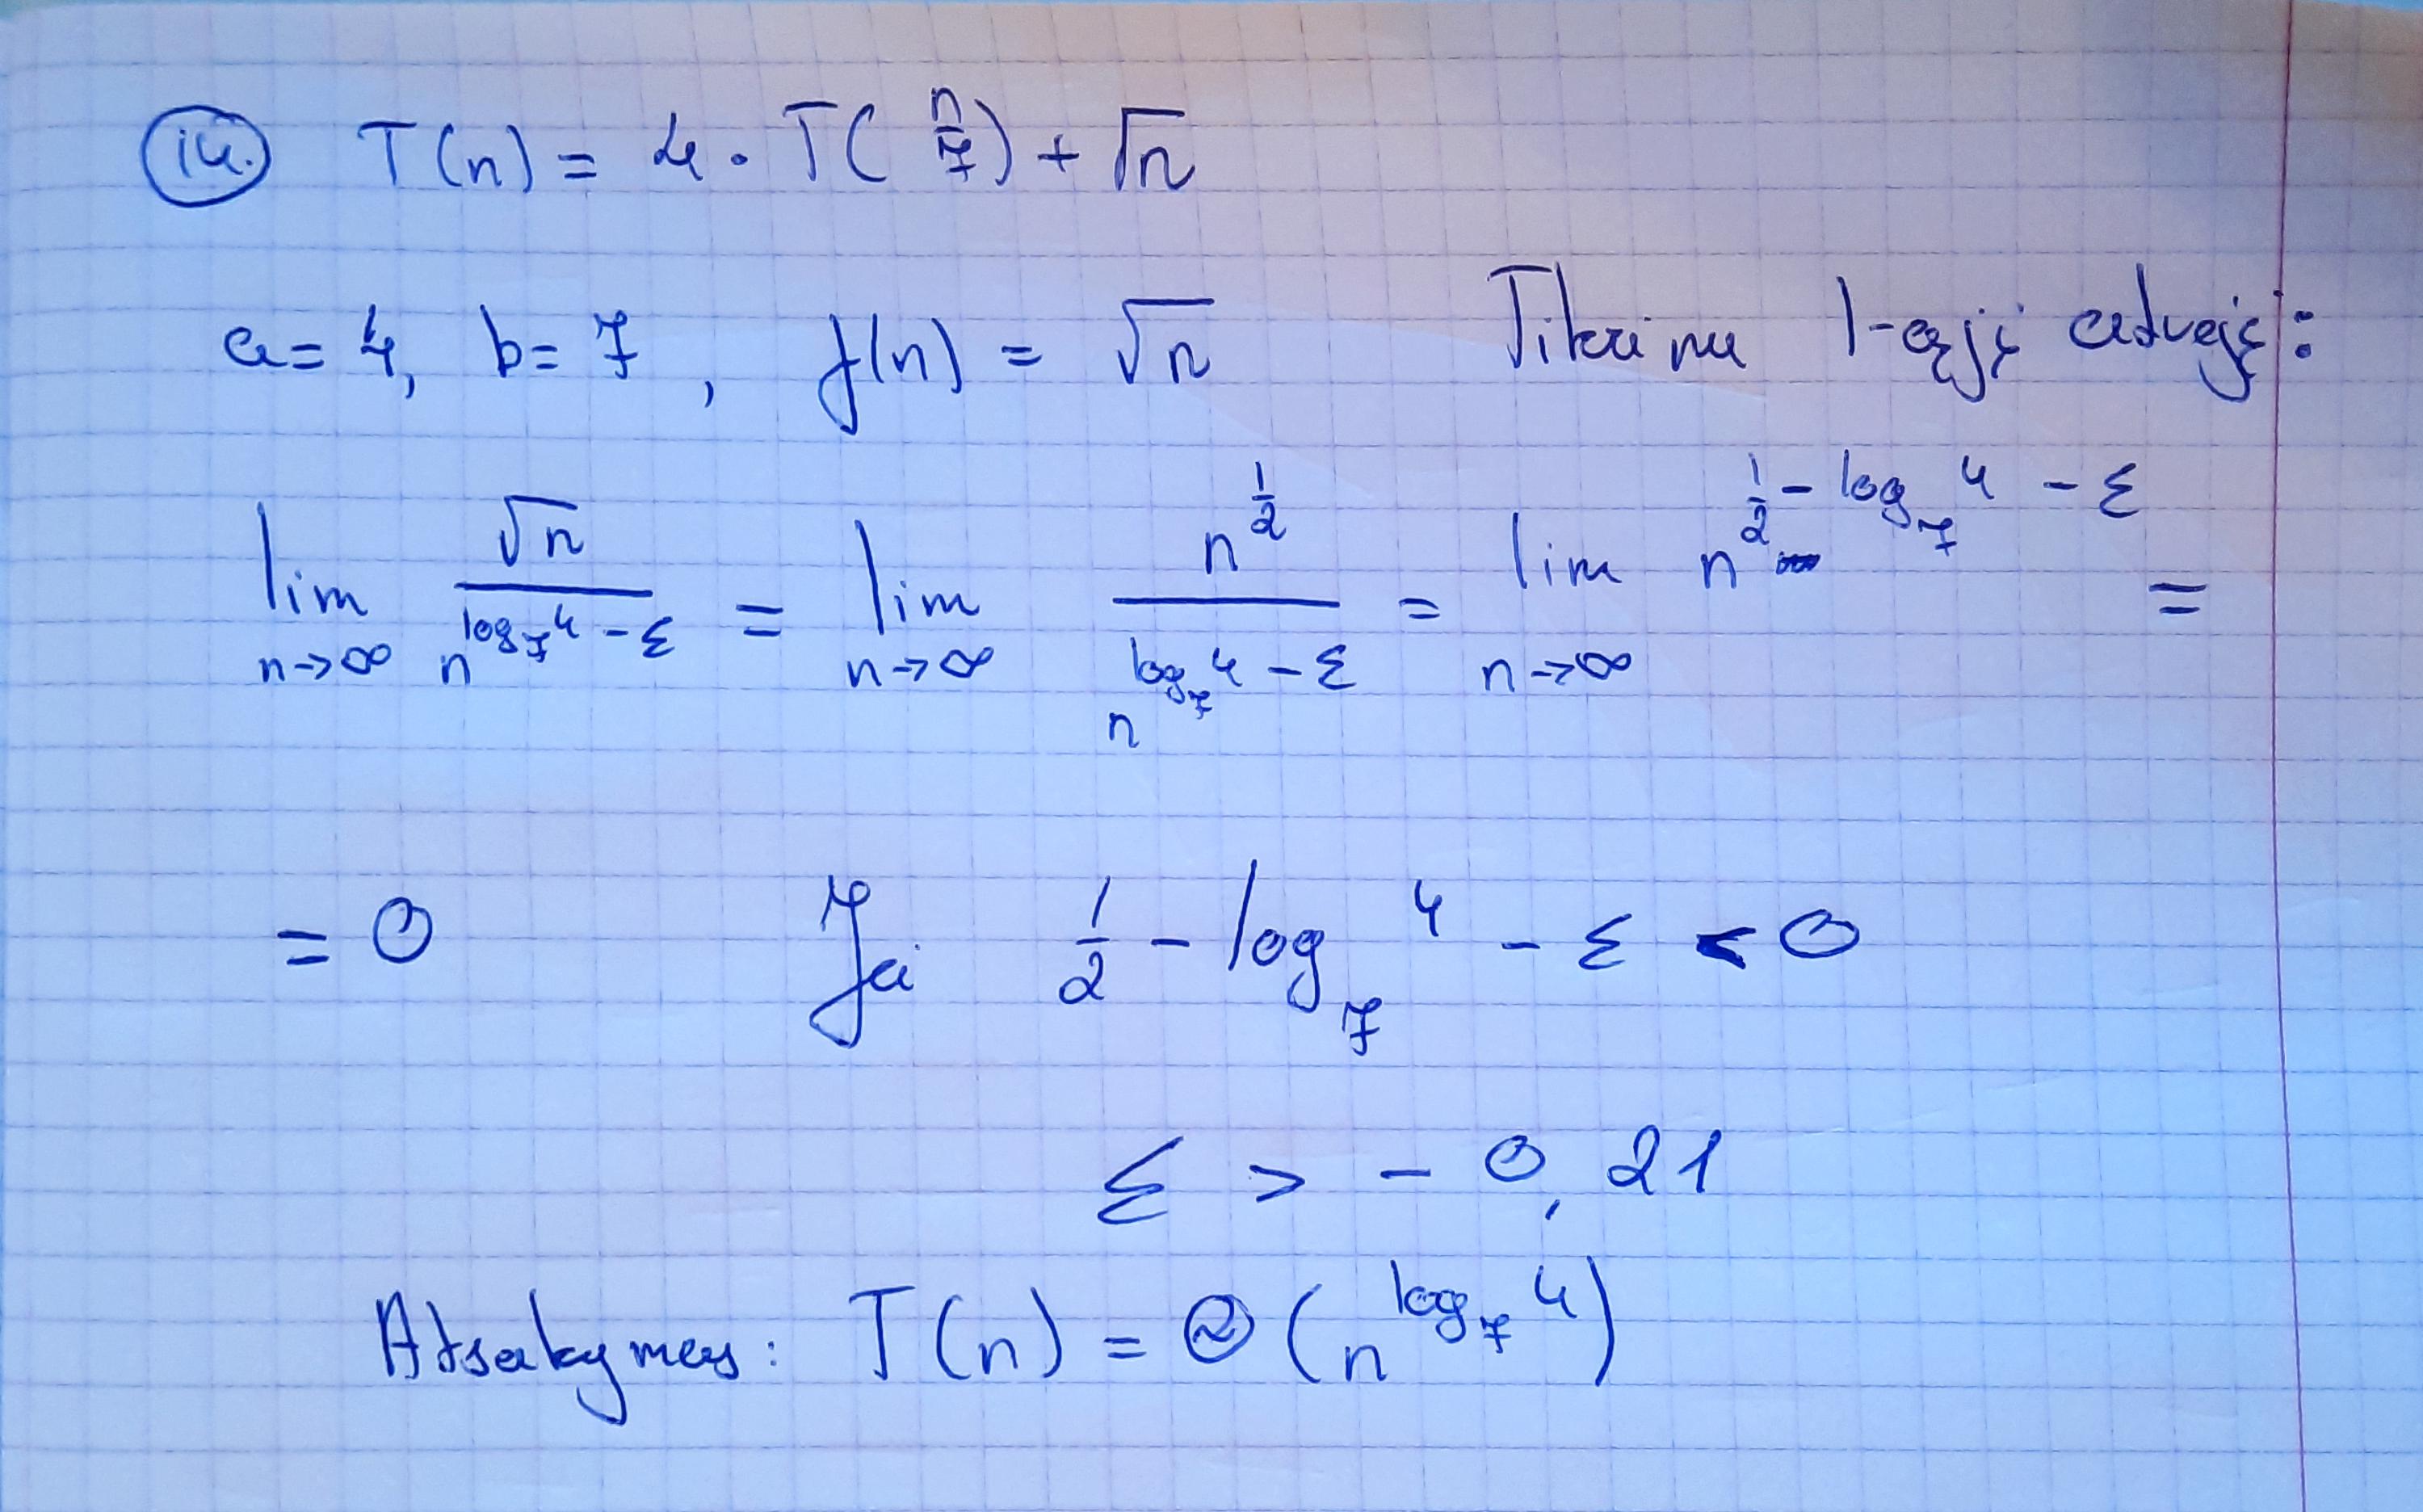 iv. T(n) = 4 · T(n/7) + √n
a = 4, b = 7, f(n) = √n Tikrinu 1-ąjį atvejį:
lim n→∞ √n / n^(log₇4 - ε) = lim n→∞ n^(1/2) / n^(log₇4 - ε) = lim n→∞ n^(1/2 - log₇4 - ε) =
= 0 Jei 1/2 - log₇4 - ε < 0
ε > - 0,21
Atsakymas: T(n) = Θ(n^(log₇4))